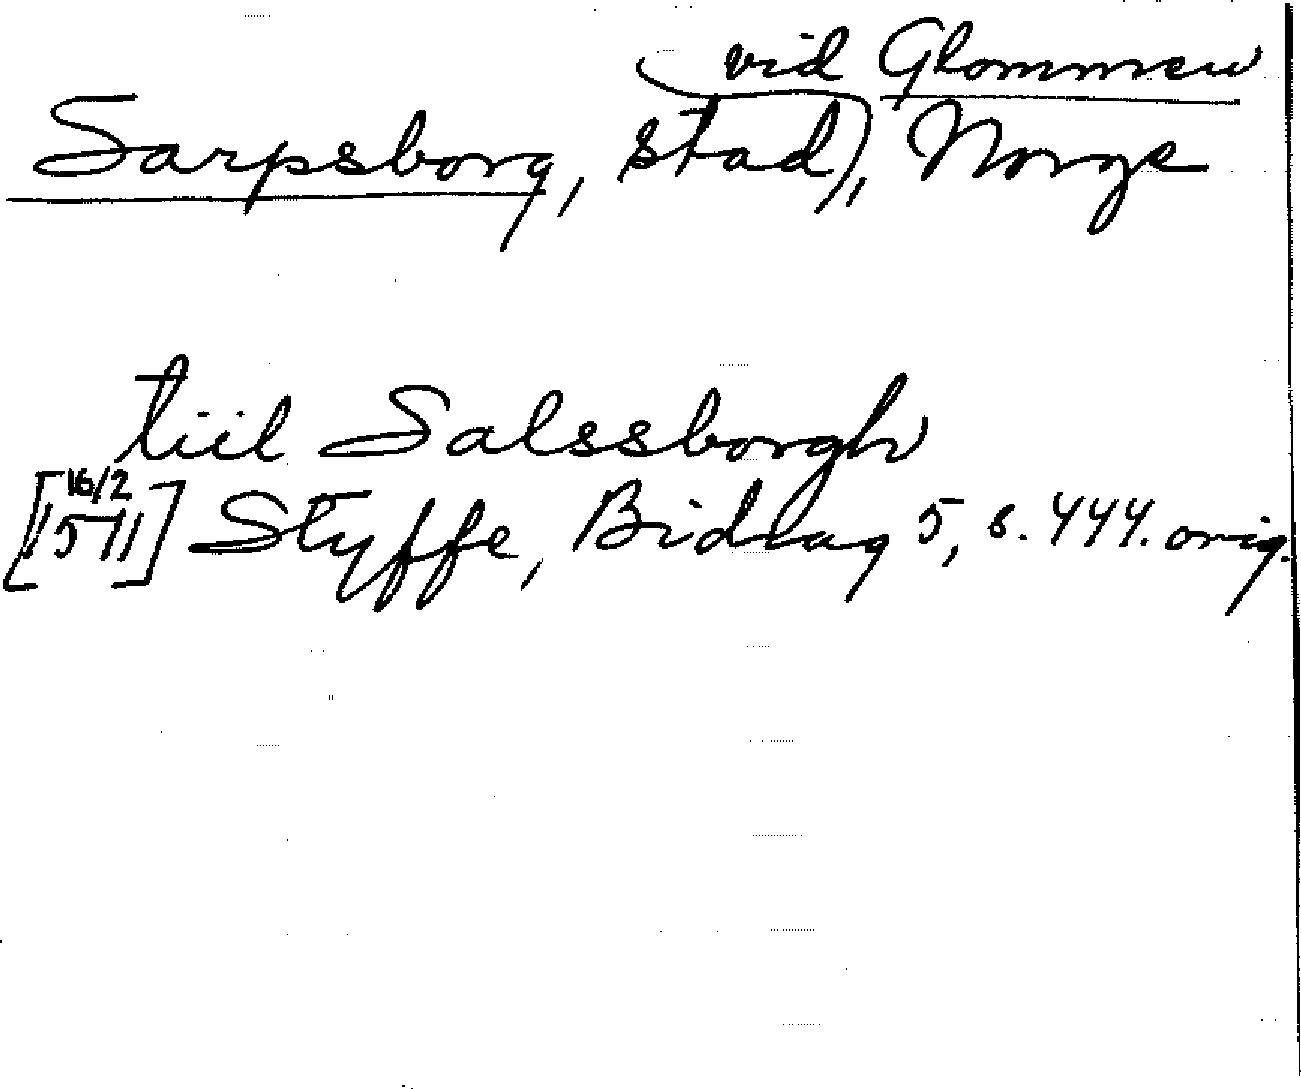 vid Glommen
Sarpsborg, stad, Norge
tiil Salssborgh
16/2
[1511] Styffe, Bidrag 5, s. 444. orig.